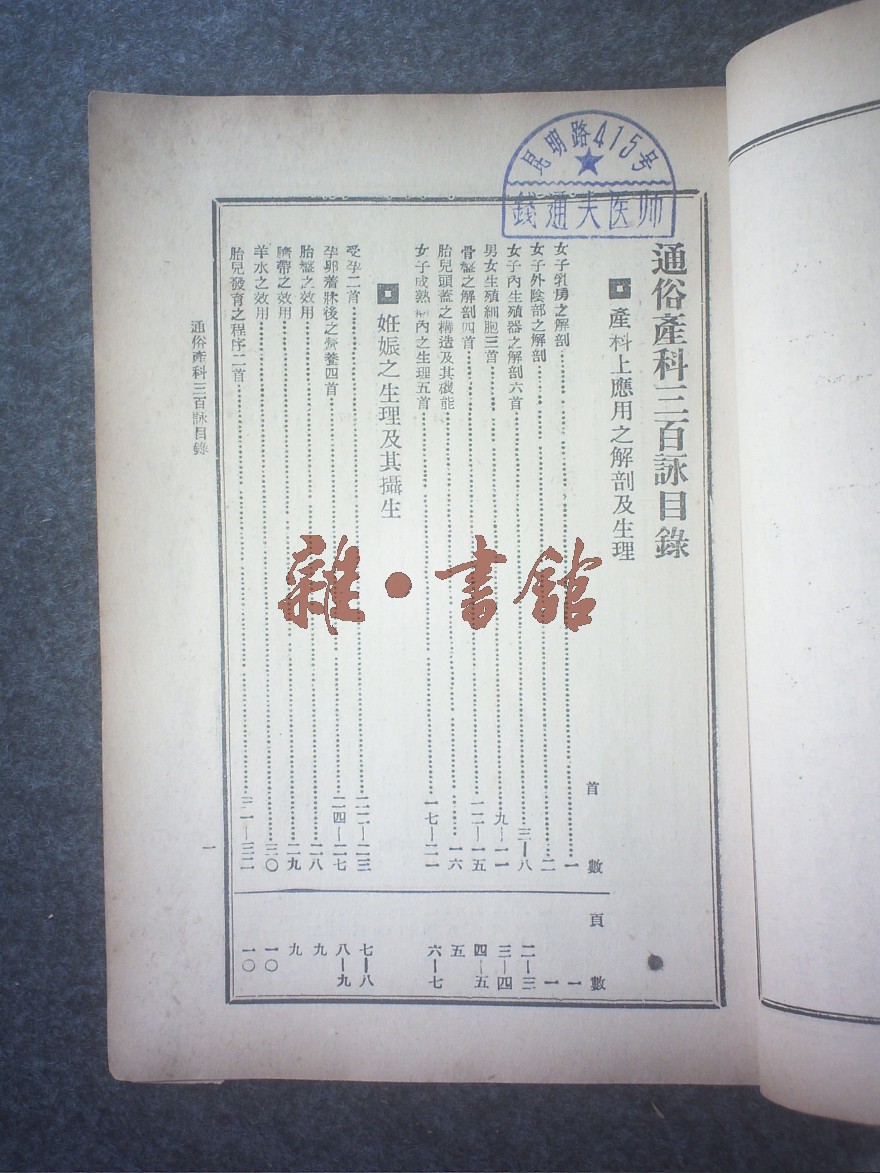 昆明路415号
錢通夫医师
通俗產科三百詠目錄
產科上應用之解剖及生理
首數
頁數
女子乳房之解剖 一 一
女子外陰部之解剖 二 一
女子內生殖器之解剖六首 三—八 二—三
男女生殖細胞三首 九—一一 三—四
骨盤之解剖四首 一二—一五 四—五
胎兒頭蓋之構造及其機能 一六 五
女子成熟期內之生理五首 一七—二一 六—七
姙娠之生理及其攝生
受孕二首 二二—二三 七—八
孕卵着牀後之營養四首 二四—二七 八—九
胎盤之效用 二八 九
臍帶之效用 二九 九
羊水之效用 三〇 一〇
胎兒發育之程序二首 三一—三二 一〇
通俗產科三百詠目錄
一
雜·書館